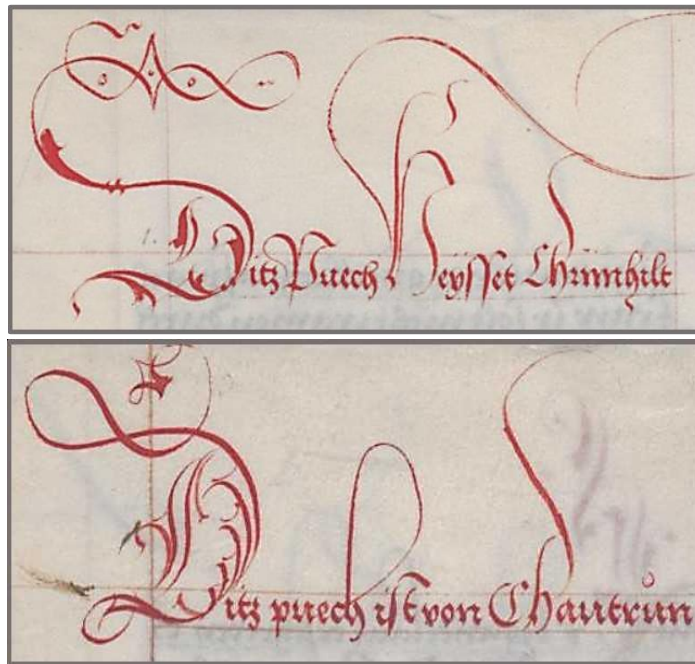 Ditz Puech Heysset Chrimhilt
Ditz puech ist von Chautrůn